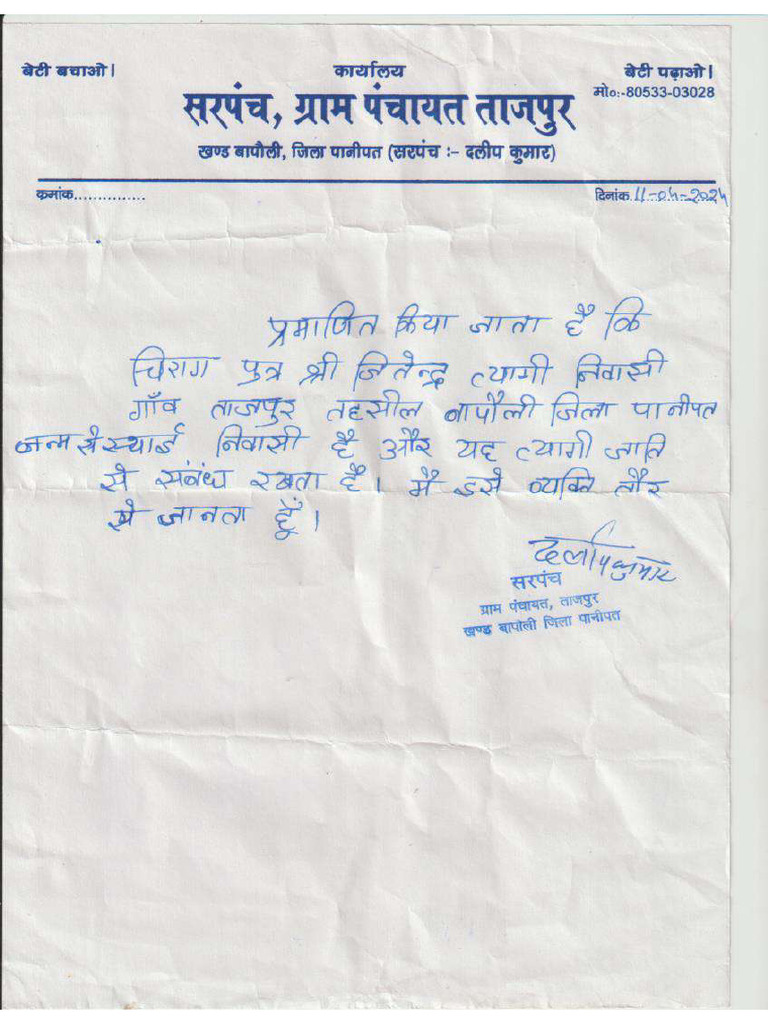 बेटी बचाओ।
कार्यालय
बेटी पढ़ाओ।
मो०:-80533-03028
सरपंच, ग्राम पंचायत ताजपुर
खण्ड बापौली, जिला पानीपत (सरपंच :- दलीप कुमार)
क्रमांक...............
दिनांक 11-04-2024
प्रमाणित किया जाता है कि
चिराग पुत्र श्री जितेन्द्र त्यागी निवासी
गाँव ताजपुर तहसील बापौली जिला पानीपत
जन्म से स्थाई निवासी है और यह त्यागी जाति
से संबंध रखता है। मैं इसे व्यक्ति तौर
से जानता हूँ।
दलीप कुमार
सरपंच
ग्राम पंचायत, ताजपुर
खण्ड बापौली जिला पानीपत